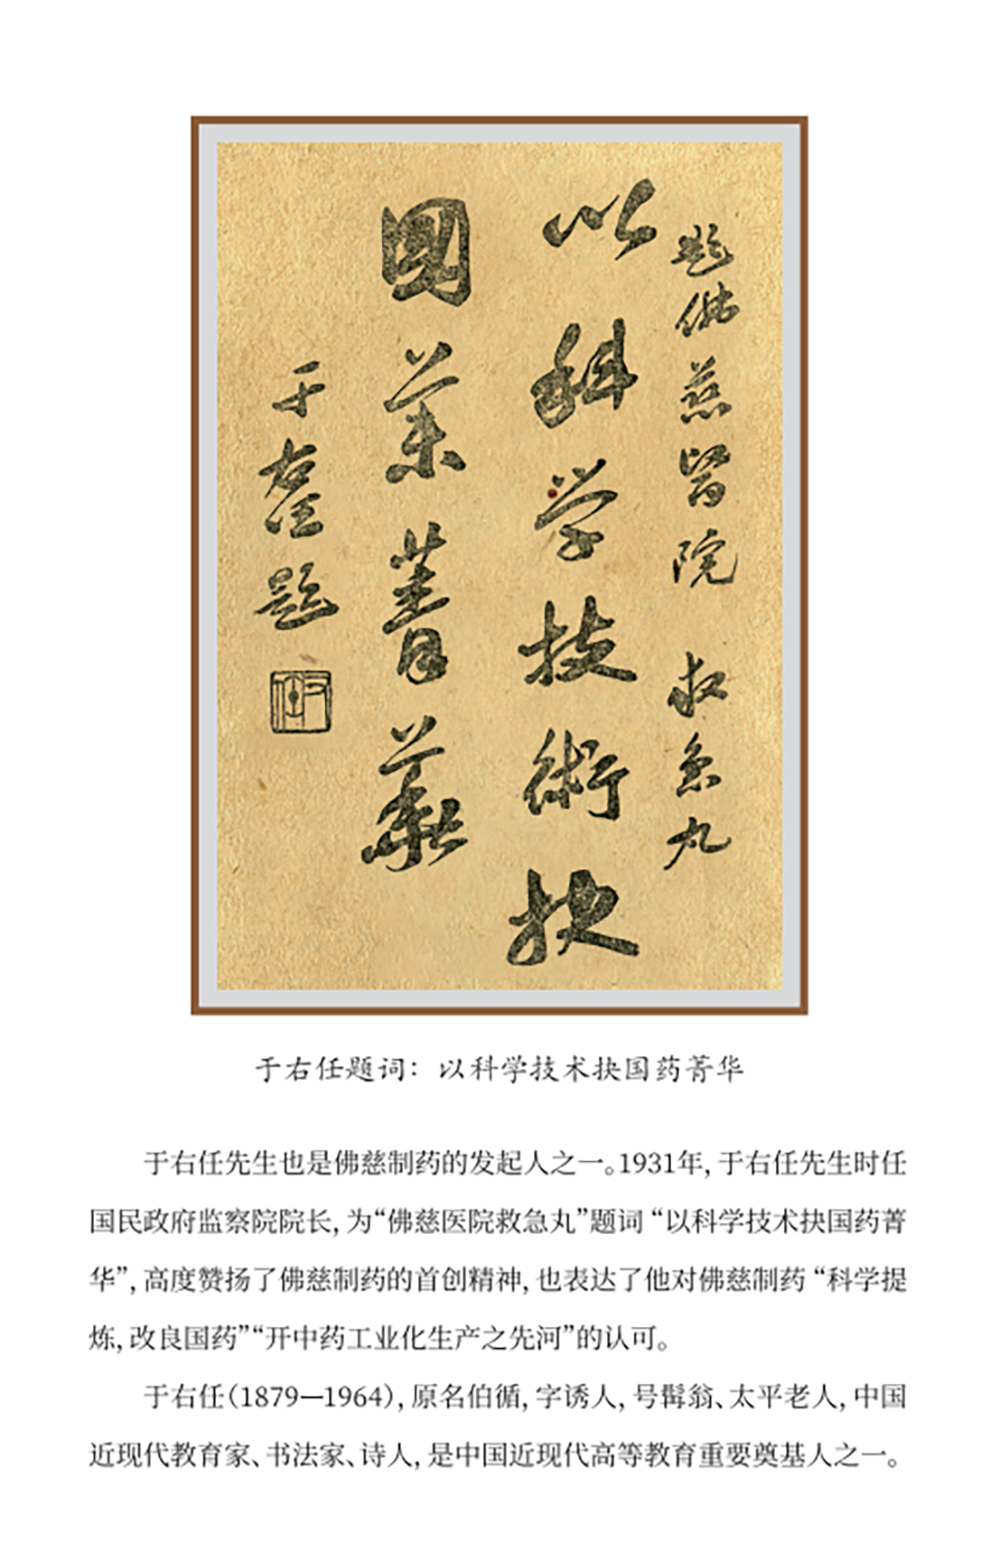 题佛慈醫院 救急丸
以科学技術抉
國葯菁華
于右任题
于右任题词：以科学技术抉国药菁华
于右任先生也是佛慈制药的发起人之一。1931年，于右任先生时任
国民政府监察院院长，为“佛慈医院救急丸”题词 “以科学技术抉国药菁
华”，高度赞扬了佛慈制药的首创精神，也表达了他对佛慈制药 “科学提
炼，改良国药”“开中药工业化生产之先河”的认可。
于右任（1879—1964），原名伯循，字诱人，号髯翁、太平老人，中国
近现代教育家、书法家、诗人，是中国近现代高等教育重要奠基人之一。